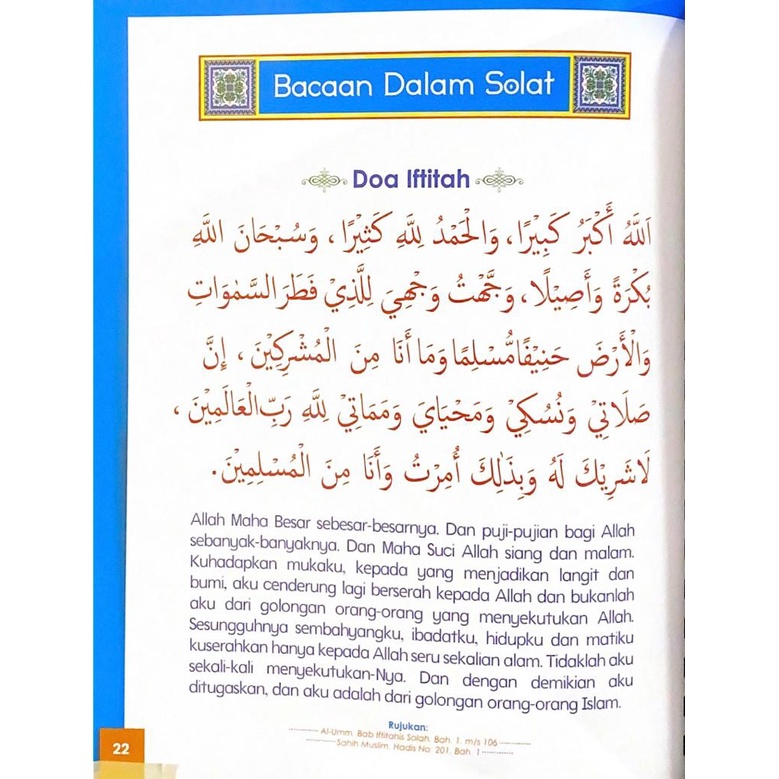 Bacaan Dalam Solat
Doa Iftitah
اَللهُ أَكْبَرُ كَبِيْرًا، وَالْحَمْدُ لِلّٰهِ كَثِيْرًا، وَسُبْحَانَ اللهِ
بُكْرَةً وَأَصِيْلًا، وَجَّهْتُ وَجْهِيَ لِلَّذِيْ فَطَرَ السَّمٰوَاتِ
وَالْأَرْضَ حَنِيْفًا مُّسْلِمًا وَمَا أَنَا مِنَ الْمُشْرِكِيْنَ، إِنَّ
صَلَاتِيْ وَنُسُكِيْ وَمَحْيَايَ وَمَمَاتِيْ لِلّٰهِ رَبِّ الْعَالَمِيْنَ،
لَا شَرِيْكَ لَهُ وَبِذٰلِكَ أُمِرْتُ وَأَنَا مِنَ الْمُسْلِمِيْنَ.
Allah Maha Besar sebesar-besarnya. Dan puji-pujian bagi Allah
sebanyak-banyaknya. Dan Maha Suci Allah siang dan malam.
Kuhadapkan mukaku, kepada yang menjadikan langit dan
bumi, aku cenderung lagi berserah kepada Allah dan bukanlah
aku dari golongan orang-orang yang menyekutukan Allah.
Sesungguhnya sembahyangku, ibadatku, hidupku dan matiku
kuserahkan hanya kepada Allah seru sekalian alam. Tidaklah aku
sekali-kali menyekutukan-Nya. Dan dengan demikian aku
ditugaskan, dan aku adalah dari golongan orang-orang Islam.
Rujukan:
Al-Umm. Bab Iftitahis Solah. Bah. 1. m/s 106
Sahih Muslim. Hadis No: 201. Bah. 1
22